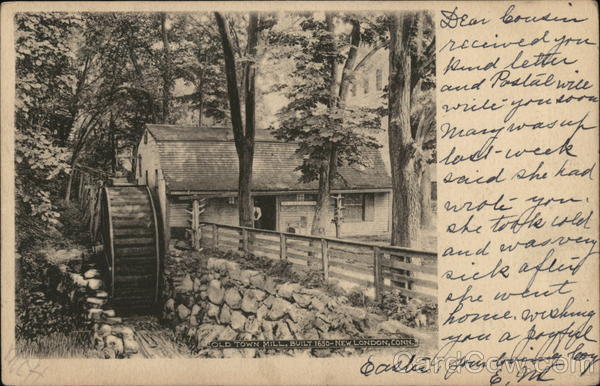 Dear Cousin
received you
kind letter
and Postal will
write you soon
Mary was up
last week
said she had
wrote you.
she took cold
and was very
sick after
she went
home. wishing
you a joyful
Easter. your loving Coz
E. M
OLD TOWN MILL, BUILT 1650-NEW LONDON, CONN.
CardCow.com